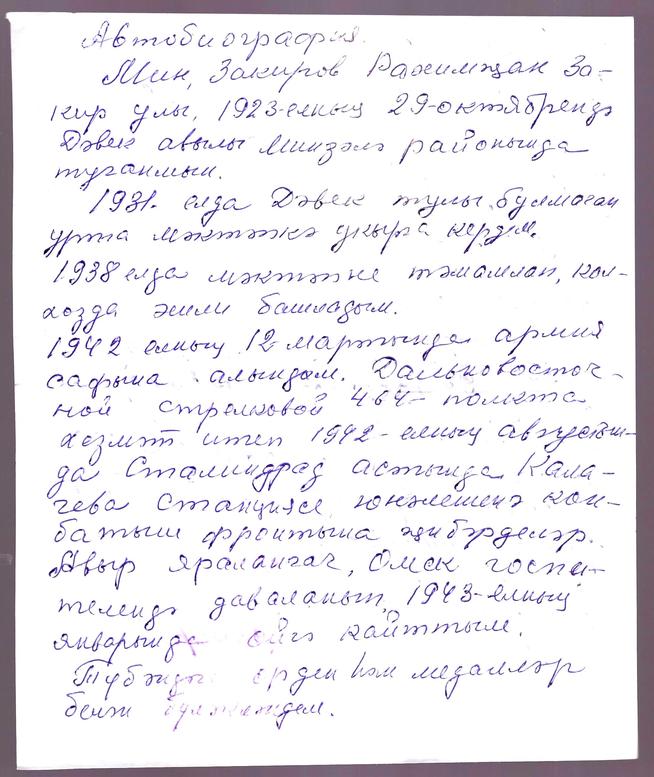 Автобиография.
Мин, Закиров Рахимҗан За-
кир улы, 1923-елның 29-октябрендә
Дәвек авылы Минзәлә районында
туганмын.
1931. елда Дәвек тулы булмаган
урта мәктәпкә укырга кердем.
1938 елда мәктәпне тәмамлап, кол-
хозда эшли башладым.
1942 елның 12 мартында армия
сафына алындым. Дальновосточ-
ной стрелковой 464- полкта
хезмәт итеп 1942-елның августын-
да Сталинград астында Кала-
чева станциясе юнәлешенә көн-
батыш фронтына җибәрделәр.
Авыр яралангач, Омск госпи-
телендә даваланып, 1943-елның
январында өйгә кайттым.
Түбәндәге орден һәм медальләр
белән